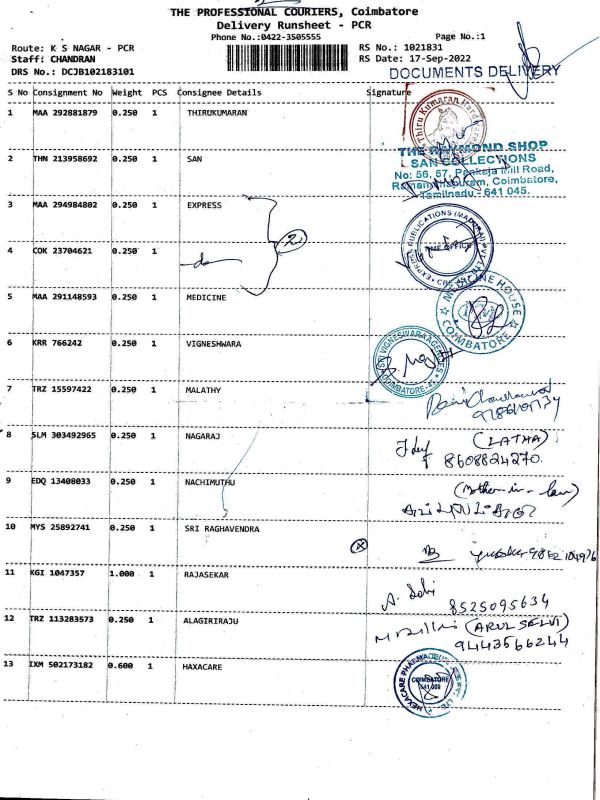 THE PROFESSIONAL COURIERS, Coimbatore
Delivery Runsheet - PCR
Phone No.:0422-3505555
Page No.:1
Route: K S NAGAR - PCR
RS No.: 1021831
Staff: CHANDRAN
RS Date: 17-Sep-2022
DRS No.: DCJB102183101
DOCUMENTS DELIVERY
S No Consignment No Weight PCS Consignee Details Signature
1 MAA 292881879 0.250 1 THIRUKUMARAN
THE RAYMOND SHOP
SAN COLLECTIONS
2 THN 213958692 0.250 1 SAN
No: 56, 57, Pankaja Mill Road,
Ramanathapuram, Coimbatore,
Tamilnadu - 641 045.
3 MAA 294984802 0.250 1 EXPRESS
4 COK 23704621 0.250 1
2
5 MAA 291148593 0.250 1 MEDICINE
MEDICINE HOUSE
COIMBATORE
6 KRR 766242 0.250 1 VIGNESHWARA
7 TRZ 15597422 0.250 1 MALATHY
8 SLM 303492965 0.250 1 NAGARAJ
(LATHA)
8608824270.
9 EDQ 13408033 0.250 1 NACHIMUTHU
(Mother-in-law)
10 MYS 25892741 0.250 1 SRI RAGHAVENDRA
11 KGI 1047357 1.000 1 RAJASEKAR
8525095634
12 TRZ 113283573 0.250 1 ALAGIRIRAJU
(ARULSELVI)
9443566244
13 IXM 502173182 0.600 1 HAXACARE
COIMBATORE